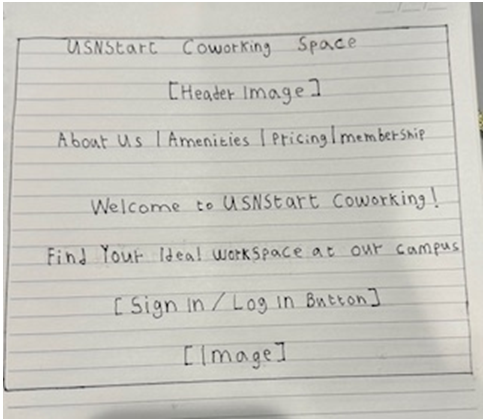 USNStart Coworking Space
[Header Image]
About Us | Amenities | Pricing | membership
Welcome to USNStart Coworking!
Find Your Ideal workspace at our campus
[Sign In / Log In Button]
[Image]